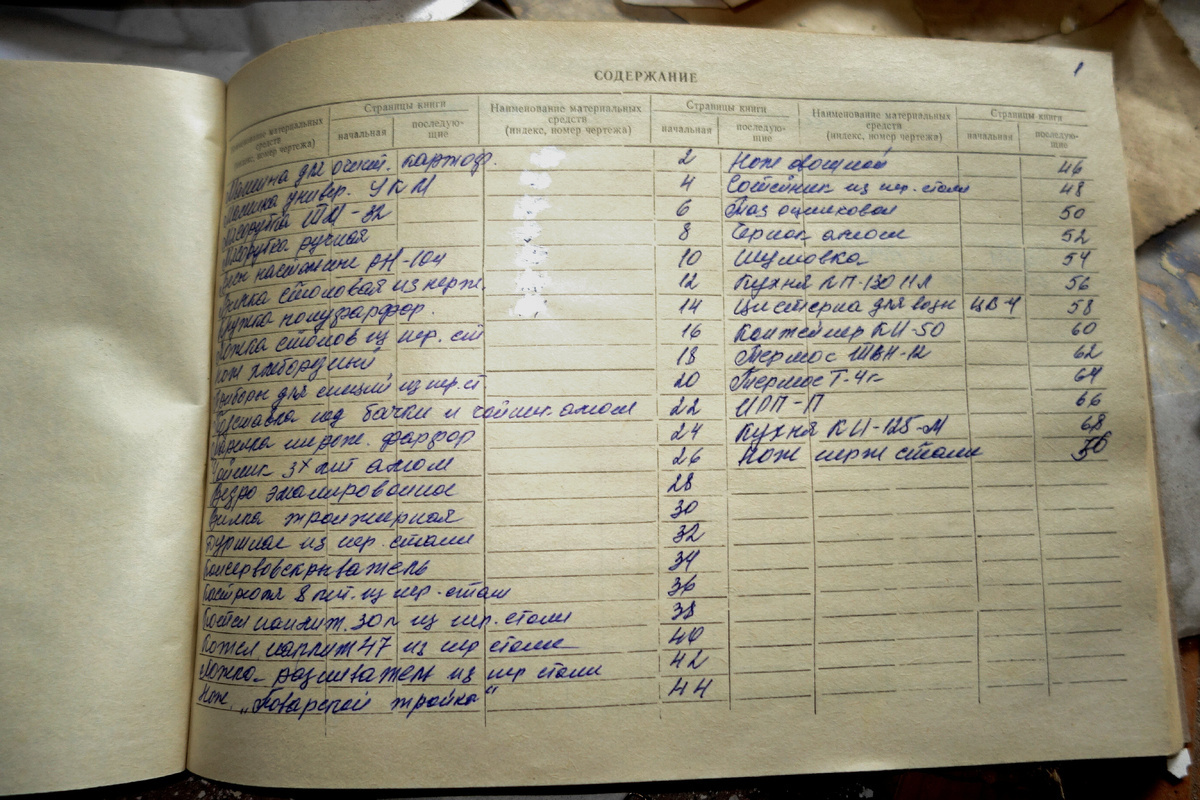 СОДЕРЖАНИЕ
1
Наименование материальных средств (индекс, номер чертежа) Страницы книги начальная последую-щие
Наименование материальных средств (индекс, номер чертежа) Страницы книги начальная последую-щие
Наименование материальных средств (индекс, номер чертежа) Страницы книги начальная последую-щие
Машина для очист. картоф. 2
универ. УКМ 4
Мясорубка ТМ-32 6
Мясорубка ручная 8
Весы настольные РН-10ч 10
столовая из нерж. 12
Кружка полуфарфор. 14
Ложка столов из нер. ст 16
Нож хлеборезный 18
Приборы для специй из нер.ст 20
Подставка под бачки и чайник алюм 22
Тарелка мелк. фарфор 24
Чайник 3х лит алюм 26
Ведро эмалированное 28
Вилка 30
Дуршлаг из нер. стали 32
Консервовскрыватель 34
Кастрюля 8 лит. из нер. стали 36
Котел наплит. 30л из нер. стали 38
Котел наплит 47 из нер стали 40
Ложка-разливатель из нер стали 42
Нож „Поварской тройка" 44
Нож овощной 46
Сотейник из нер. стали 48
Таз оцинкован 50
Черпак алюм 52
Шумовка 54
Кухня КП-130 НЛ 56
Цистерна для воды ЦВ-4 58
Контейнер КИ-50 60
Термос ТВН-12 62
Термос Т-4к 64
ИРП-П 66
Кухня КИ-125-М 68
Нож нерж стали